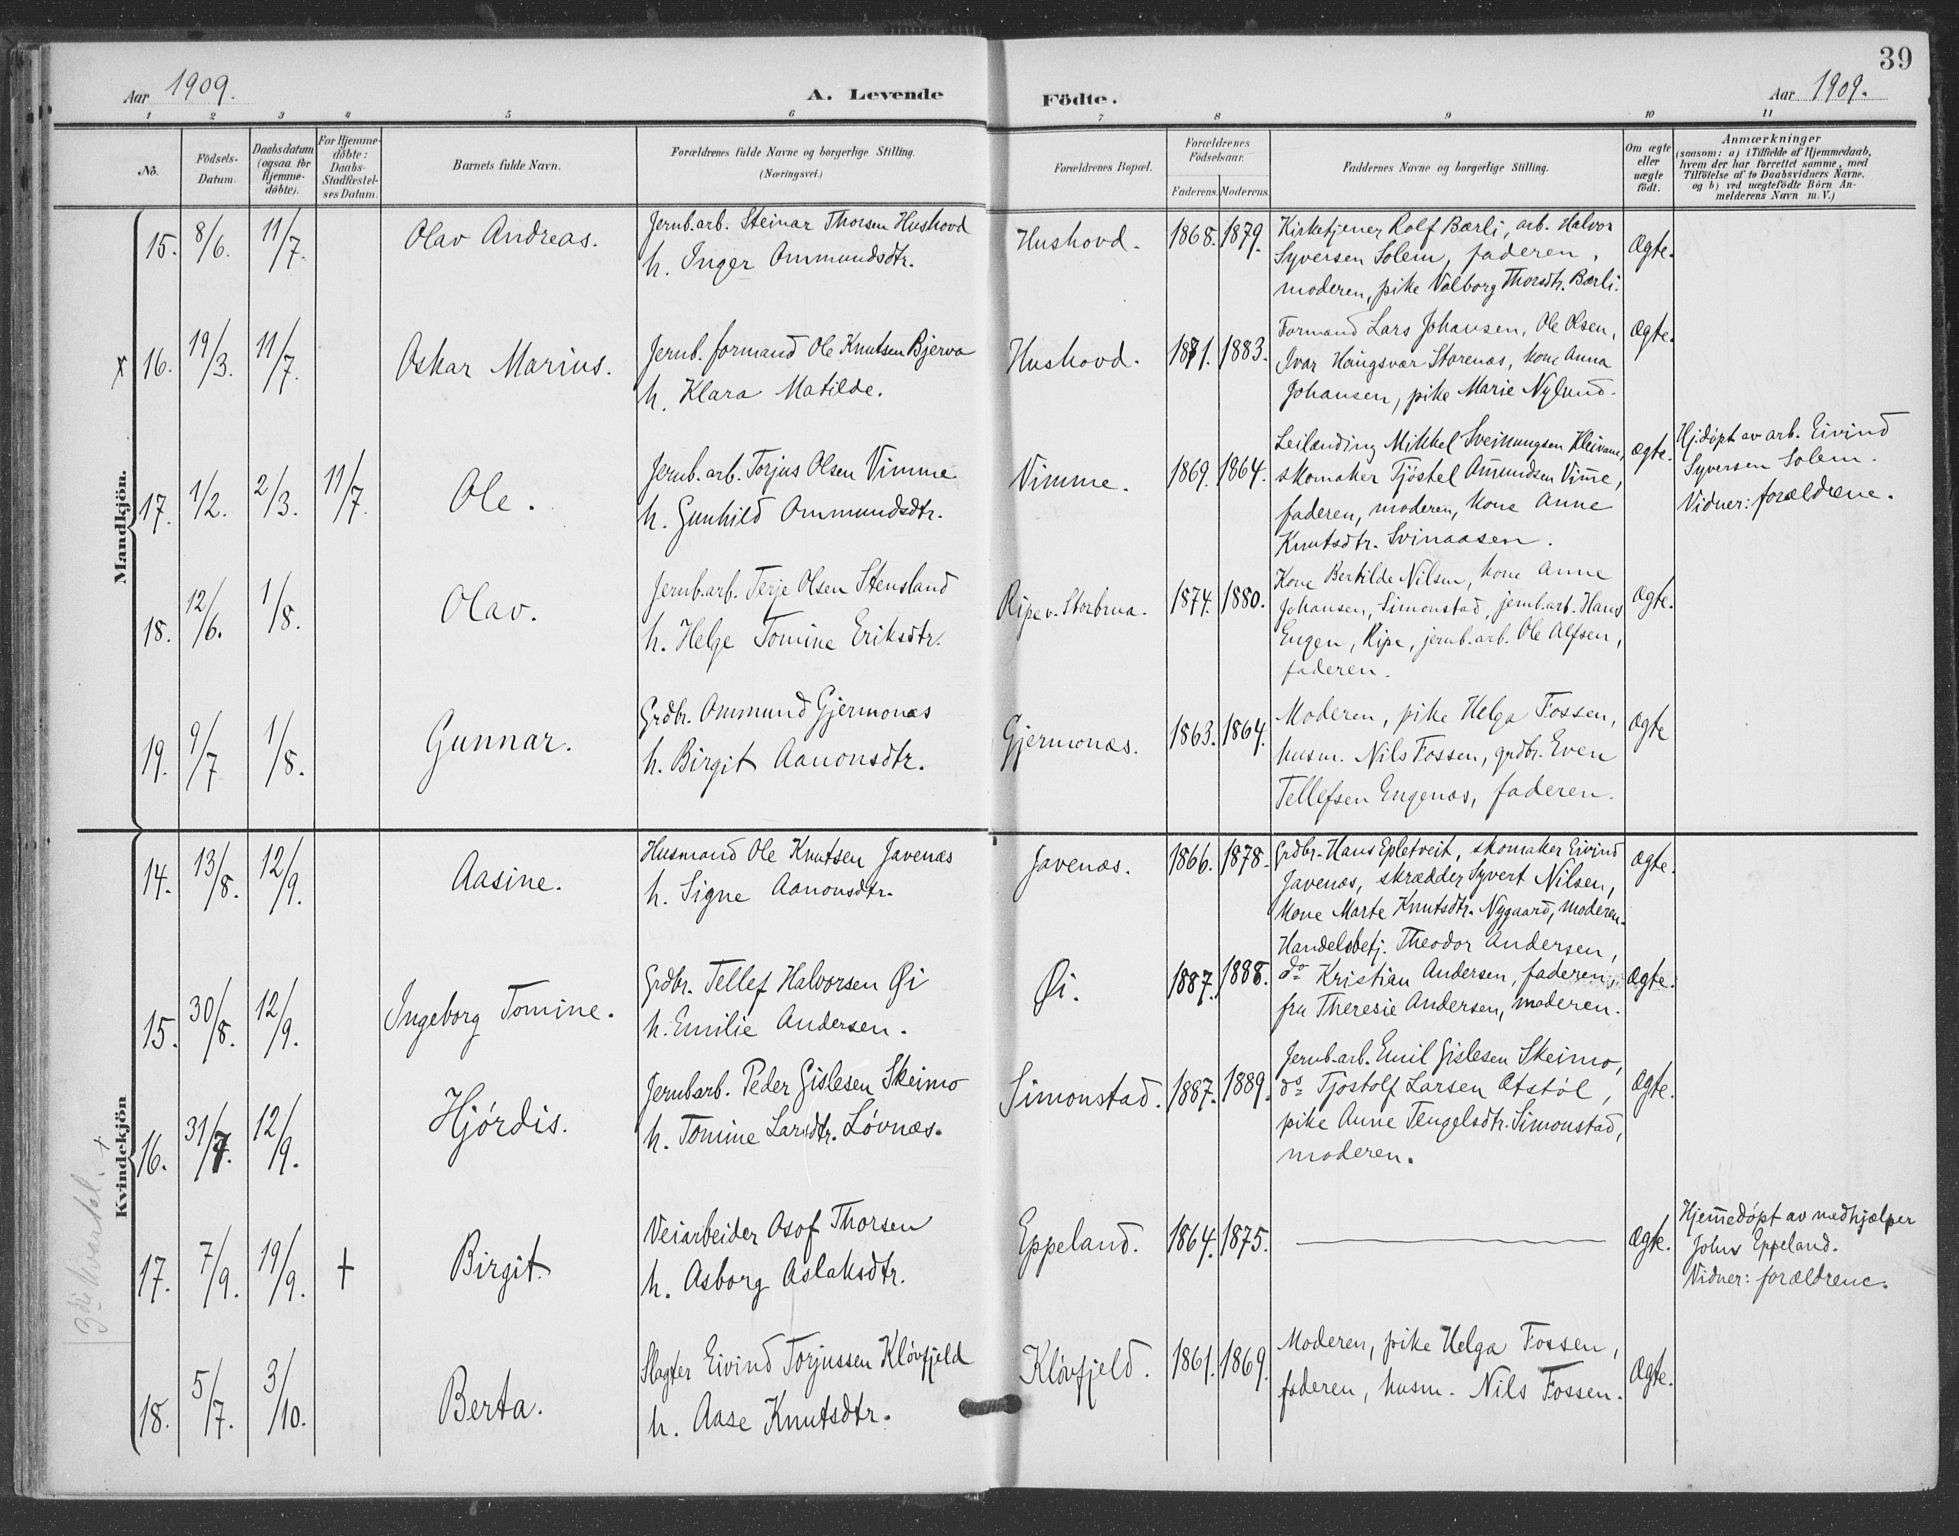 39
Aar 1909.
A. Levende Födte.
Aar 1909.
1 2 3 4 5 6 7 8 9 10 11
No.
Födsels-
Datum.
Daabsdatum
(ogsaa for
Hjemme-
döbte).
For Hjemme-
döbte:
Daabs-
Stadfæstel-
ses Datum.
Barnets fulde Navn.
Forældrenes fulde Navne og borgerlige Stilling.
(Næringsvei.)
Forældrenes Bopæl.
Forældrenes
Födselsaar.
Faderens. Moderens.
Faddernes Navne og borgerlige Stilling.
Om ægte
eller
uægte
födt.
Anmærkninger
(saasom: a) i Tilfælde af Hjemmedaab,
hvem der har forrettet samme, med
Tilföielse af to Daabsvidners Navne,
og b) ved uægtefödte Börn An-
melderens Navn m. V.)
Mandkjön.
15. 8/6. 11/7. Olav Andreas.
Jernb.arb. Steinar Thorsen Hushovd
h. Inger Ommundsdtr.
Hushovd. 1868. 1879.
Kirketjener Rolf Bærli, arb. Halvor
Syversen Solem, faderen,
moderen, pike Valborg Thorsdtr. Bærli.
Ægte.
x 16. 19/3. 11/7. Oskar Marius.
Jernb. formand Ole Knutsen Bjerva
h. Klara Matilde.
Hushovd. 1871. 1883.
Formand Lars Johansen, Ole Olsen,
Ivar Haugsvær Storenæs, kone Anna
Johansen, pike Marie Nylund.
Ægte.
17. 1/2. 2/3. 11/7. Ole.
Jernb. arb. Torjus Olsen Vimme
h. Gunhild Ommundsdtr.
Vimme. 1869. 1864.
Leilænding Mikkel Sveinungsen Kleivane,
skomaker Tjøstel Omundsen Vime,
faderen, moderen, kone Anne
Knutsdtr. Svinaasen.
Ægte.
Hj.døpt av arb. Eivind
Syversen Solem.
Vidner: forældrene.
18. 12/6. 1/8. Olav.
Jernb.arb. Terje Olsen Stensland
h. Helge Tomine Eriksdtr.
Ripe v. Storbrua. 1874. 1880.
Kone Bertilde Nilsen, kone Anne
Johansen, Simonstad, jernb.arb. Hans
Engen, Ripe, jernb.arb. Ole Alfsen,
faderen.
Ægte.
19. 9/7 1/8. Gunnar.
Grdbr. Ommund Gjermonæs
h. Birgit Aanonsdtr.
Gjermonæs. 1863. 1864.
Moderen, pike Helga Fossen,
husm. Nils Fossen, grdbr. Even
Tellefsen Engenæs, faderen.
Ægte
Kvindekjön
3die kvartal. +
14. 13/8. 12/9. Aasine.
Husmand Ole Knutsen Javenæs
h. Signe Aanonsdtr.
Javenæs. 1866. 1878.
Grdbr. Hans Epletveit, skomaker Eivind
Javenæs, skrædder Syvert Nilsen,
kone Marte Knutsdtr. Nygaard, moderen.
Ægte.
15. 30/8. 12/9. Ingeborg Tomine.
Grdbr. Tellef Halvorsen Øi
h. Emilie Andersen.
Øi. 1887. 1888.
Handelsbetj. Theodor Andersen,
do Kristian Andersen, faderen,
fru Theresie Andersen, moderen.
Ægte.
16. 31/7. 12/9. Hjördis.
Jernb.arb. Peder Gislesen Skeimo
h. Tomine Larsdtr. Løvnæs.
Simonstad. 1887. 1889.
Jernb.arb. Emil Gislesen Skeimo,
do Tjostolf Larsen Atstøl,
pike Anne Tengelsdtr. Simonstad,
moderen.
Ægte.
17. 7/9. 19/9. + Birgit.
Veiarbeider Asof Thorsen
h. Asborg Aslaksdtr.
Eppeland. 1864. 1875. —
Ægte.
Hjemmedøpt av medhjælper
Johs Eppeland.
Vidner: forældrene.
18. 5/7. 3/10. Berta.
Slagter Eivind Torjussen Kløvfjeld
h. Aase Knutsdtr.
Kløvfjeld. 1861. 1869.
Moderen, pike Helga Fossen,
faderen, husm. Nils Fossen.
Ægte.